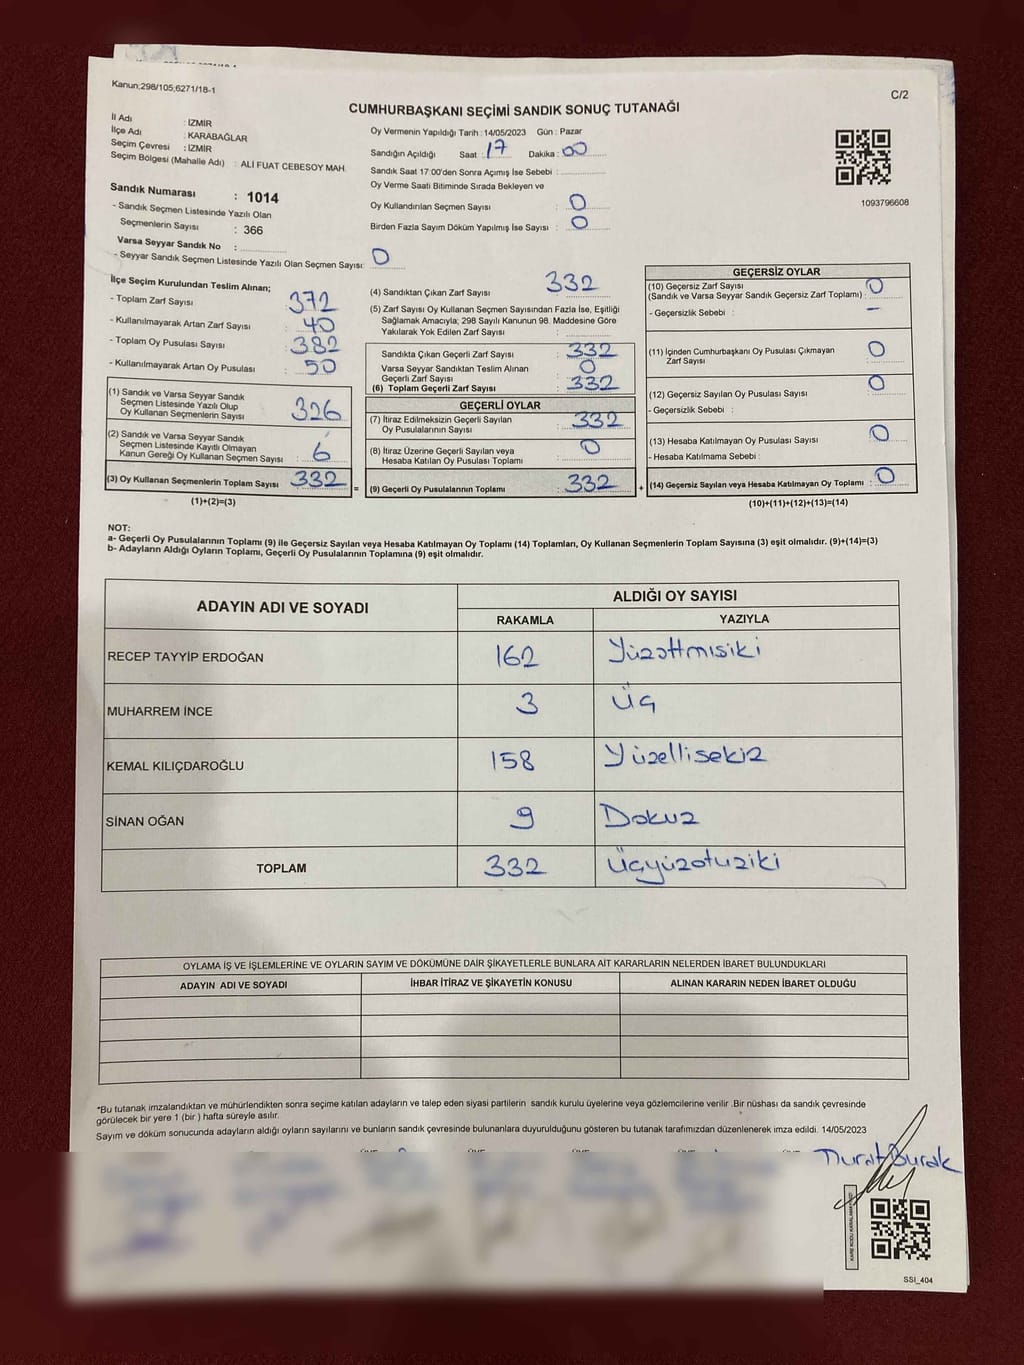 Kanun;298/105;6271/18-1
C/2
CUMHURBAŞKANI SEÇİMİ SANDIK SONUÇ TUTANAĞI
İl Adı : İZMİR
İlçe Adı : KARABAĞLAR
Seçim Çevresi : İZMİR
Seçim Bölgesi (Mahalle Adı) : ALİ FUAT CEBESOY MAH.
Sandık Numarası : 1014
- Sandık Seçmen Listesinde Yazılı Olan
Seçmenlerin Sayısı : 366
Varsa Seyyar Sandık No :
- Seyyar Sandık Seçmen Listesinde Yazılı Olan Seçmen Sayısı: 0
Oy Vermenin Yapıldığı Tarih : 14/05/2023 Gün : Pazar
Sandığın Açıldığı Saat : 17 Dakika : 00
Sandık Saat 17:00'den Sonra Açılmış İse Sebebi :
Oy Verme Saati Bitiminde Sırada Bekleyen ve
Oy Kullandırılan Seçmen Sayısı : 0
Birden Fazla Sayım Döküm Yapılmış İse Sayısı : 0
1093796608
İlçe Seçim Kurulundan Teslim Alınan;
- Toplam Zarf Sayısı : 372
- Kullanılmayarak Artan Zarf Sayısı : 40
- Toplam Oy Pusulası Sayısı : 382
- Kullanılmayarak Artan Oy Pusulası : 50
(1) Sandık ve Varsa Seyyar Sandık
Seçmen Listesinde Yazılı Olup
Oy Kullanan Seçmenlerin Sayısı : 326
(2) Sandık ve Varsa Seyyar Sandık
Seçmen Listesinde Kayıtlı Olmayan
Kanun Gereği Oy Kullanan Seçmen Sayısı : 6
(3) Oy Kullanan Seçmenlerin Toplam Sayısı : 332
(1)+(2)=(3)
(4) Sandıktan Çıkan Zarf Sayısı : 332
(5) Zarf Sayısı Oy Kullanan Seçmen Sayısından Fazla İse, Eşitliği
Sağlamak Amacıyla; 298 Sayılı Kanunun 98. Maddesine Göre
Yakılarak Yok Edilen Zarf Sayısı :
Sandıkta Çıkan Geçerli Zarf Sayısı : 332
Varsa Seyyar Sandıktan Teslim Alınan
Geçerli Zarf Sayısı : 0
(6) Toplam Geçerli Zarf Sayısı : 332
GEÇERLİ OYLAR
(7) İtiraz Edilmeksizin Geçerli Sayılan
Oy Pusulalarının Sayısı : 332
(8) İtiraz Üzerine Geçerli Sayılan veya
Hesaba Katılan Oy Pusulası Toplamı : 0
= (9) Geçerli Oy Pusulalarının Toplamı : 332 +
GEÇERSİZ OYLAR
(10) Geçersiz Zarf Sayısı
(Sandık ve Varsa Seyyar Sandık Geçersiz Zarf Toplamı) : 0
- Geçersizlik Sebebi : –
(11) İçinden Cumhurbaşkanı Oy Pusulası Çıkmayan
Zarf Sayısı : 0
(12) Geçersiz Sayılan Oy Pusulası Sayısı : 0
- Geçersizlik Sebebi :
(13) Hesaba Katılmayan Oy Pusulası Sayısı : 0
- Hesaba Katılmama Sebebi :
(14) Geçersiz Sayılan veya Hesaba Katılmayan Oy Toplamı : 0
(10)+(11)+(12)+(13)=(14)
NOT:
a- Geçerli Oy Pusulalarının Toplamı (9) ile Geçersiz Sayılan veya Hesaba Katılmayan Oy Toplamı (14) Toplamları, Oy Kullanan Seçmenlerin Toplam Sayısına (3) eşit olmalıdır. (9)+(14)=(3)
b- Adayların Aldığı Oyların Toplamı, Geçerli Oy Pusulalarının Toplamına (9) eşit olmalıdır.
ADAYIN ADI VE SOYADI ALDIĞI OY SAYISI
RAKAMLA YAZIYLA
RECEP TAYYİP ERDOĞAN 162 Yüzattmısiki
MUHARREM İNCE 3 Üç
KEMAL KILIÇDAROĞLU 158 Yüzellisekiz
SİNAN OĞAN 9 Dokuz
TOPLAM 332 Üçyüzotuziki
OYLAMA İŞ VE İŞLEMLERİNE VE OYLARIN SAYIM VE DÖKÜMÜNE DAİR ŞİKAYETLERLE BUNLARA AİT KARARLARIN NELERDEN İBARET BULUNDUKLARI
ADAYIN ADI VE SOYADI İHBAR İTİRAZ VE ŞİKAYETİN KONUSU ALINAN KARARIN NEDEN İBARET OLDUĞU
*Bu tutanak imzalandıktan ve mühürlendikten sonra seçime katılan adayların ve talep eden siyasi partilerin sandık kurulu üyelerine veya gözlemcilerine verilir .Bir nüshası da sandık çevresinde
görülecek bir yere 1 (bir ) hafta süreyle asılır.
Sayım ve döküm sonucunda adayların aldığı oyların sayılarını ve bunların sandık çevresinde bulunanlara duyurulduğunu gösteren bu tutanak tarafımızdan düzenlenerek imza edildi. 14/05/2023
Murat Burak
SSI_404